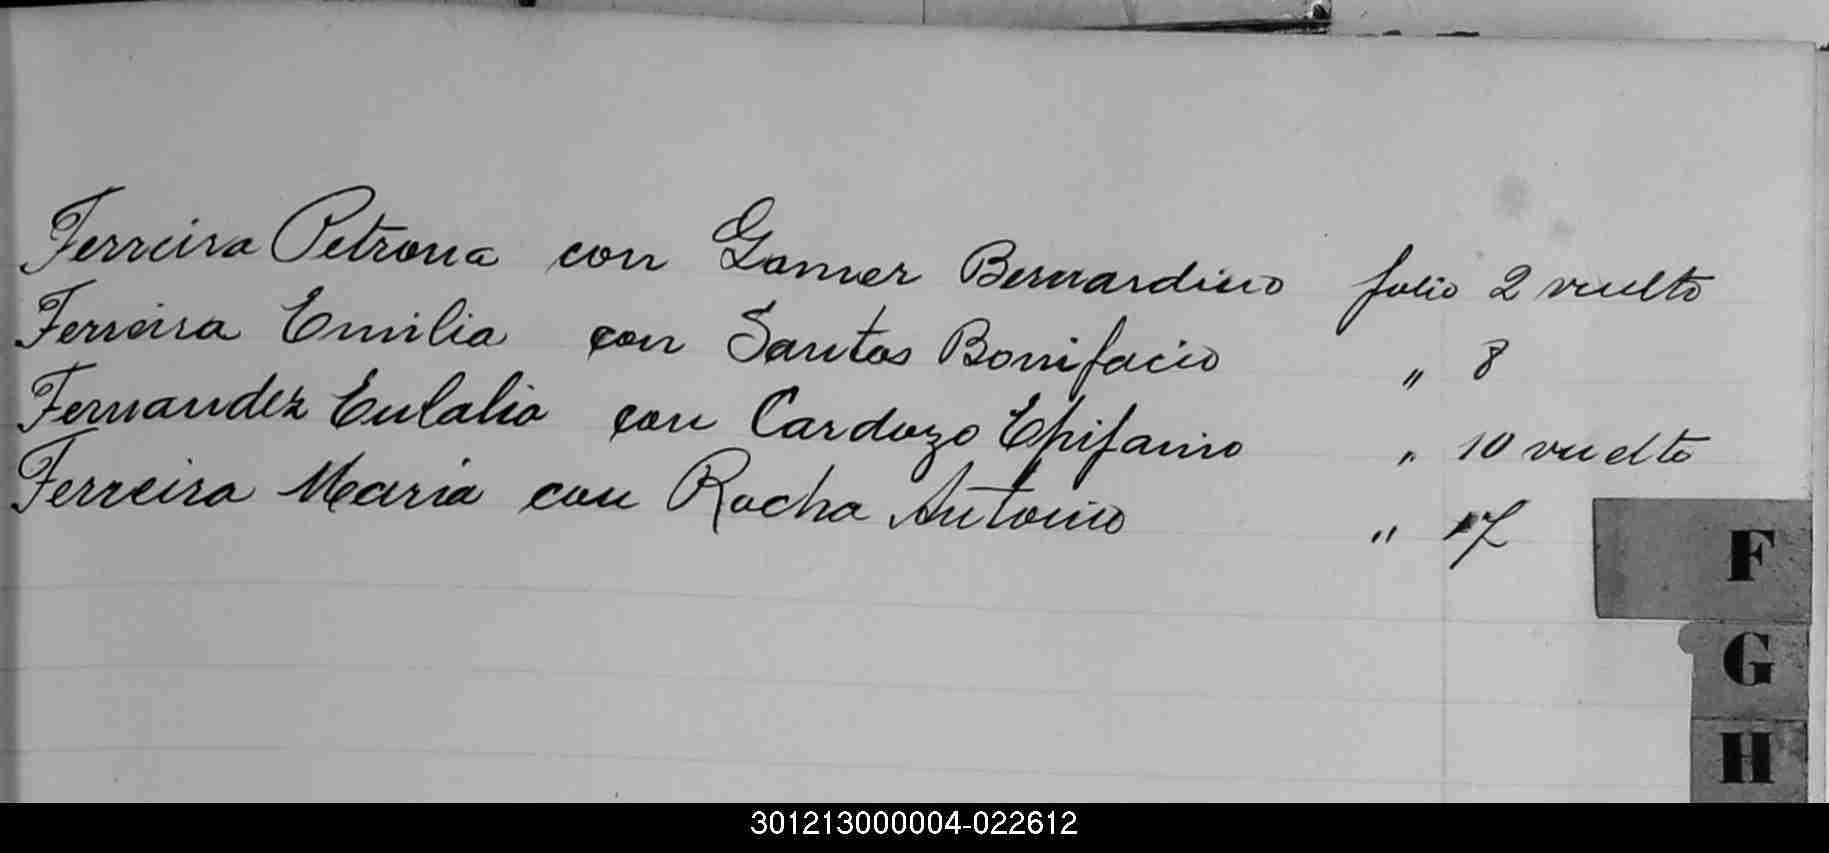 Ferreira Petrona con Gamer Bernardino folio 2 vuelto
Ferreira Emilia con Santos Bonifacio " 8
Fernandez Eulalia con Cardozo Epifanio " 10 vuelto
Ferreira Maria con Rocha Antonio " 17
F
G
H
301213000004-022612